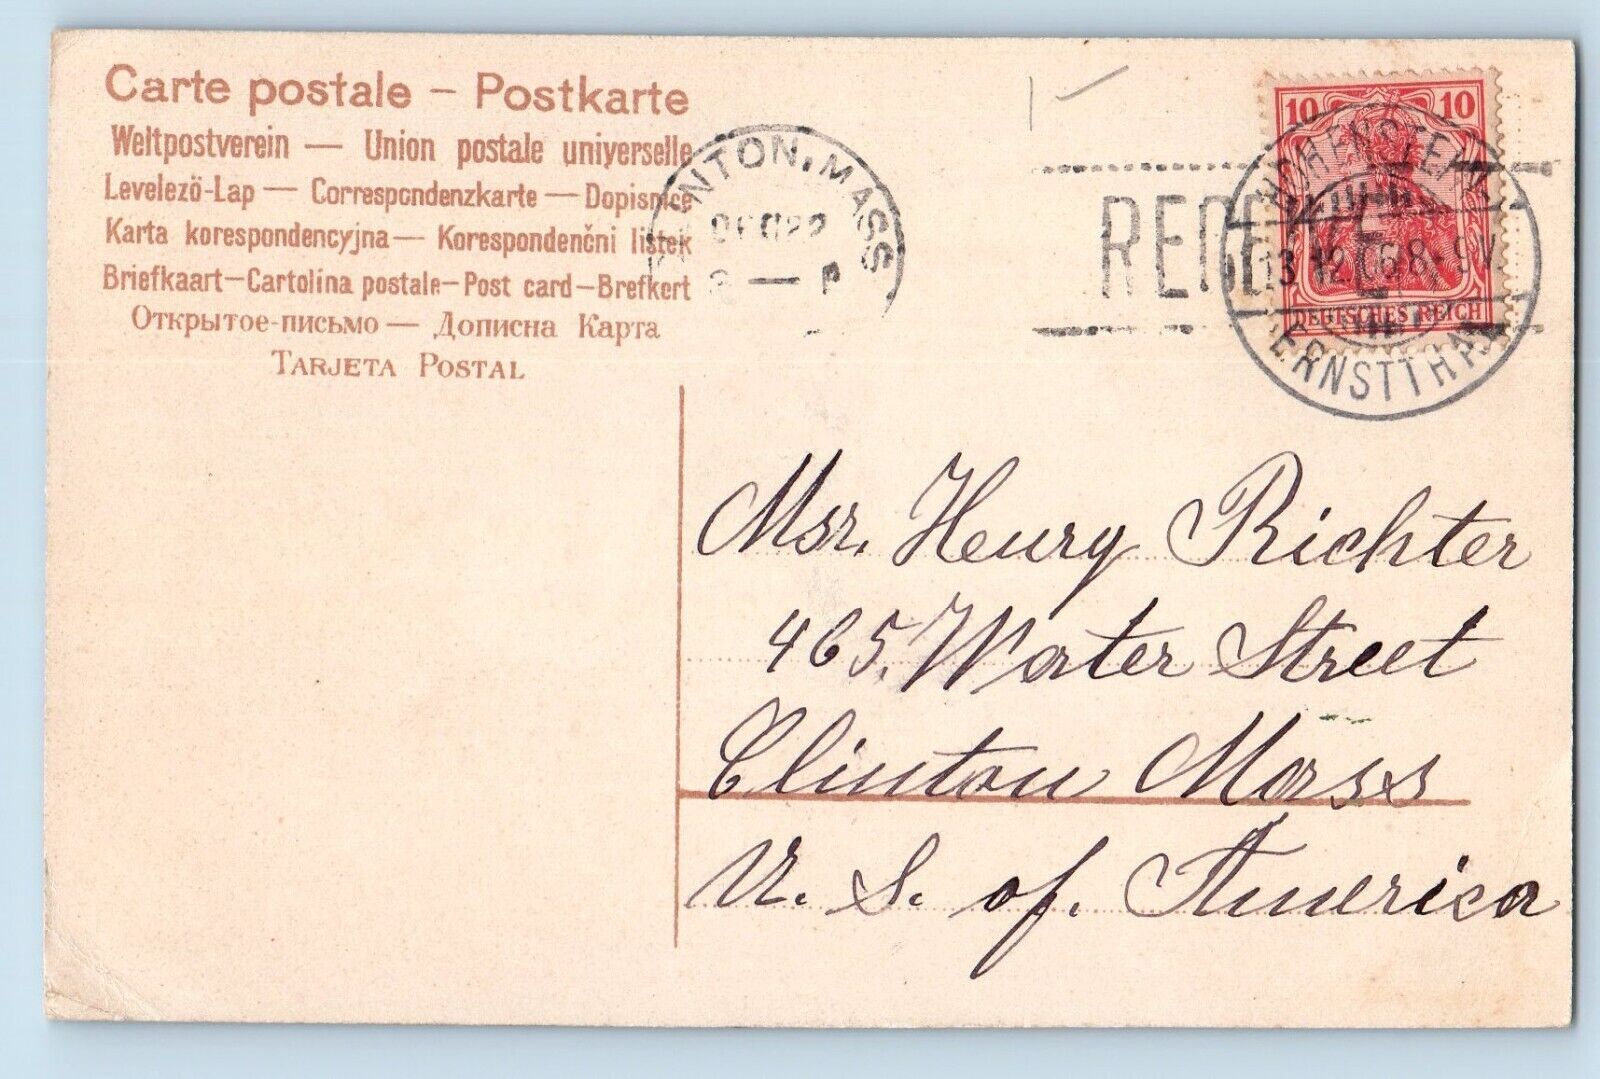 Carte postale – Postkarte
Weltpostverein — Union postale universelle
Levelező-Lap — Correspondenzkarte — Dopisnice
Karta korespondencyjna — Korespondenční listek
Briefkaart – Cartolina postale – Post card – Brefkort
Открытое-письмо — Дописна Карта
Tarjeta Postal
CLINTON, MASS
DEC 22
P
10 10
DEUTSCHES REICH
HOHENSTEIN
13.12.06 8-9V
ERNSTTHAL
Msr. Henry Richter
465. Water Street
Clinton Mass
U. S. of. America